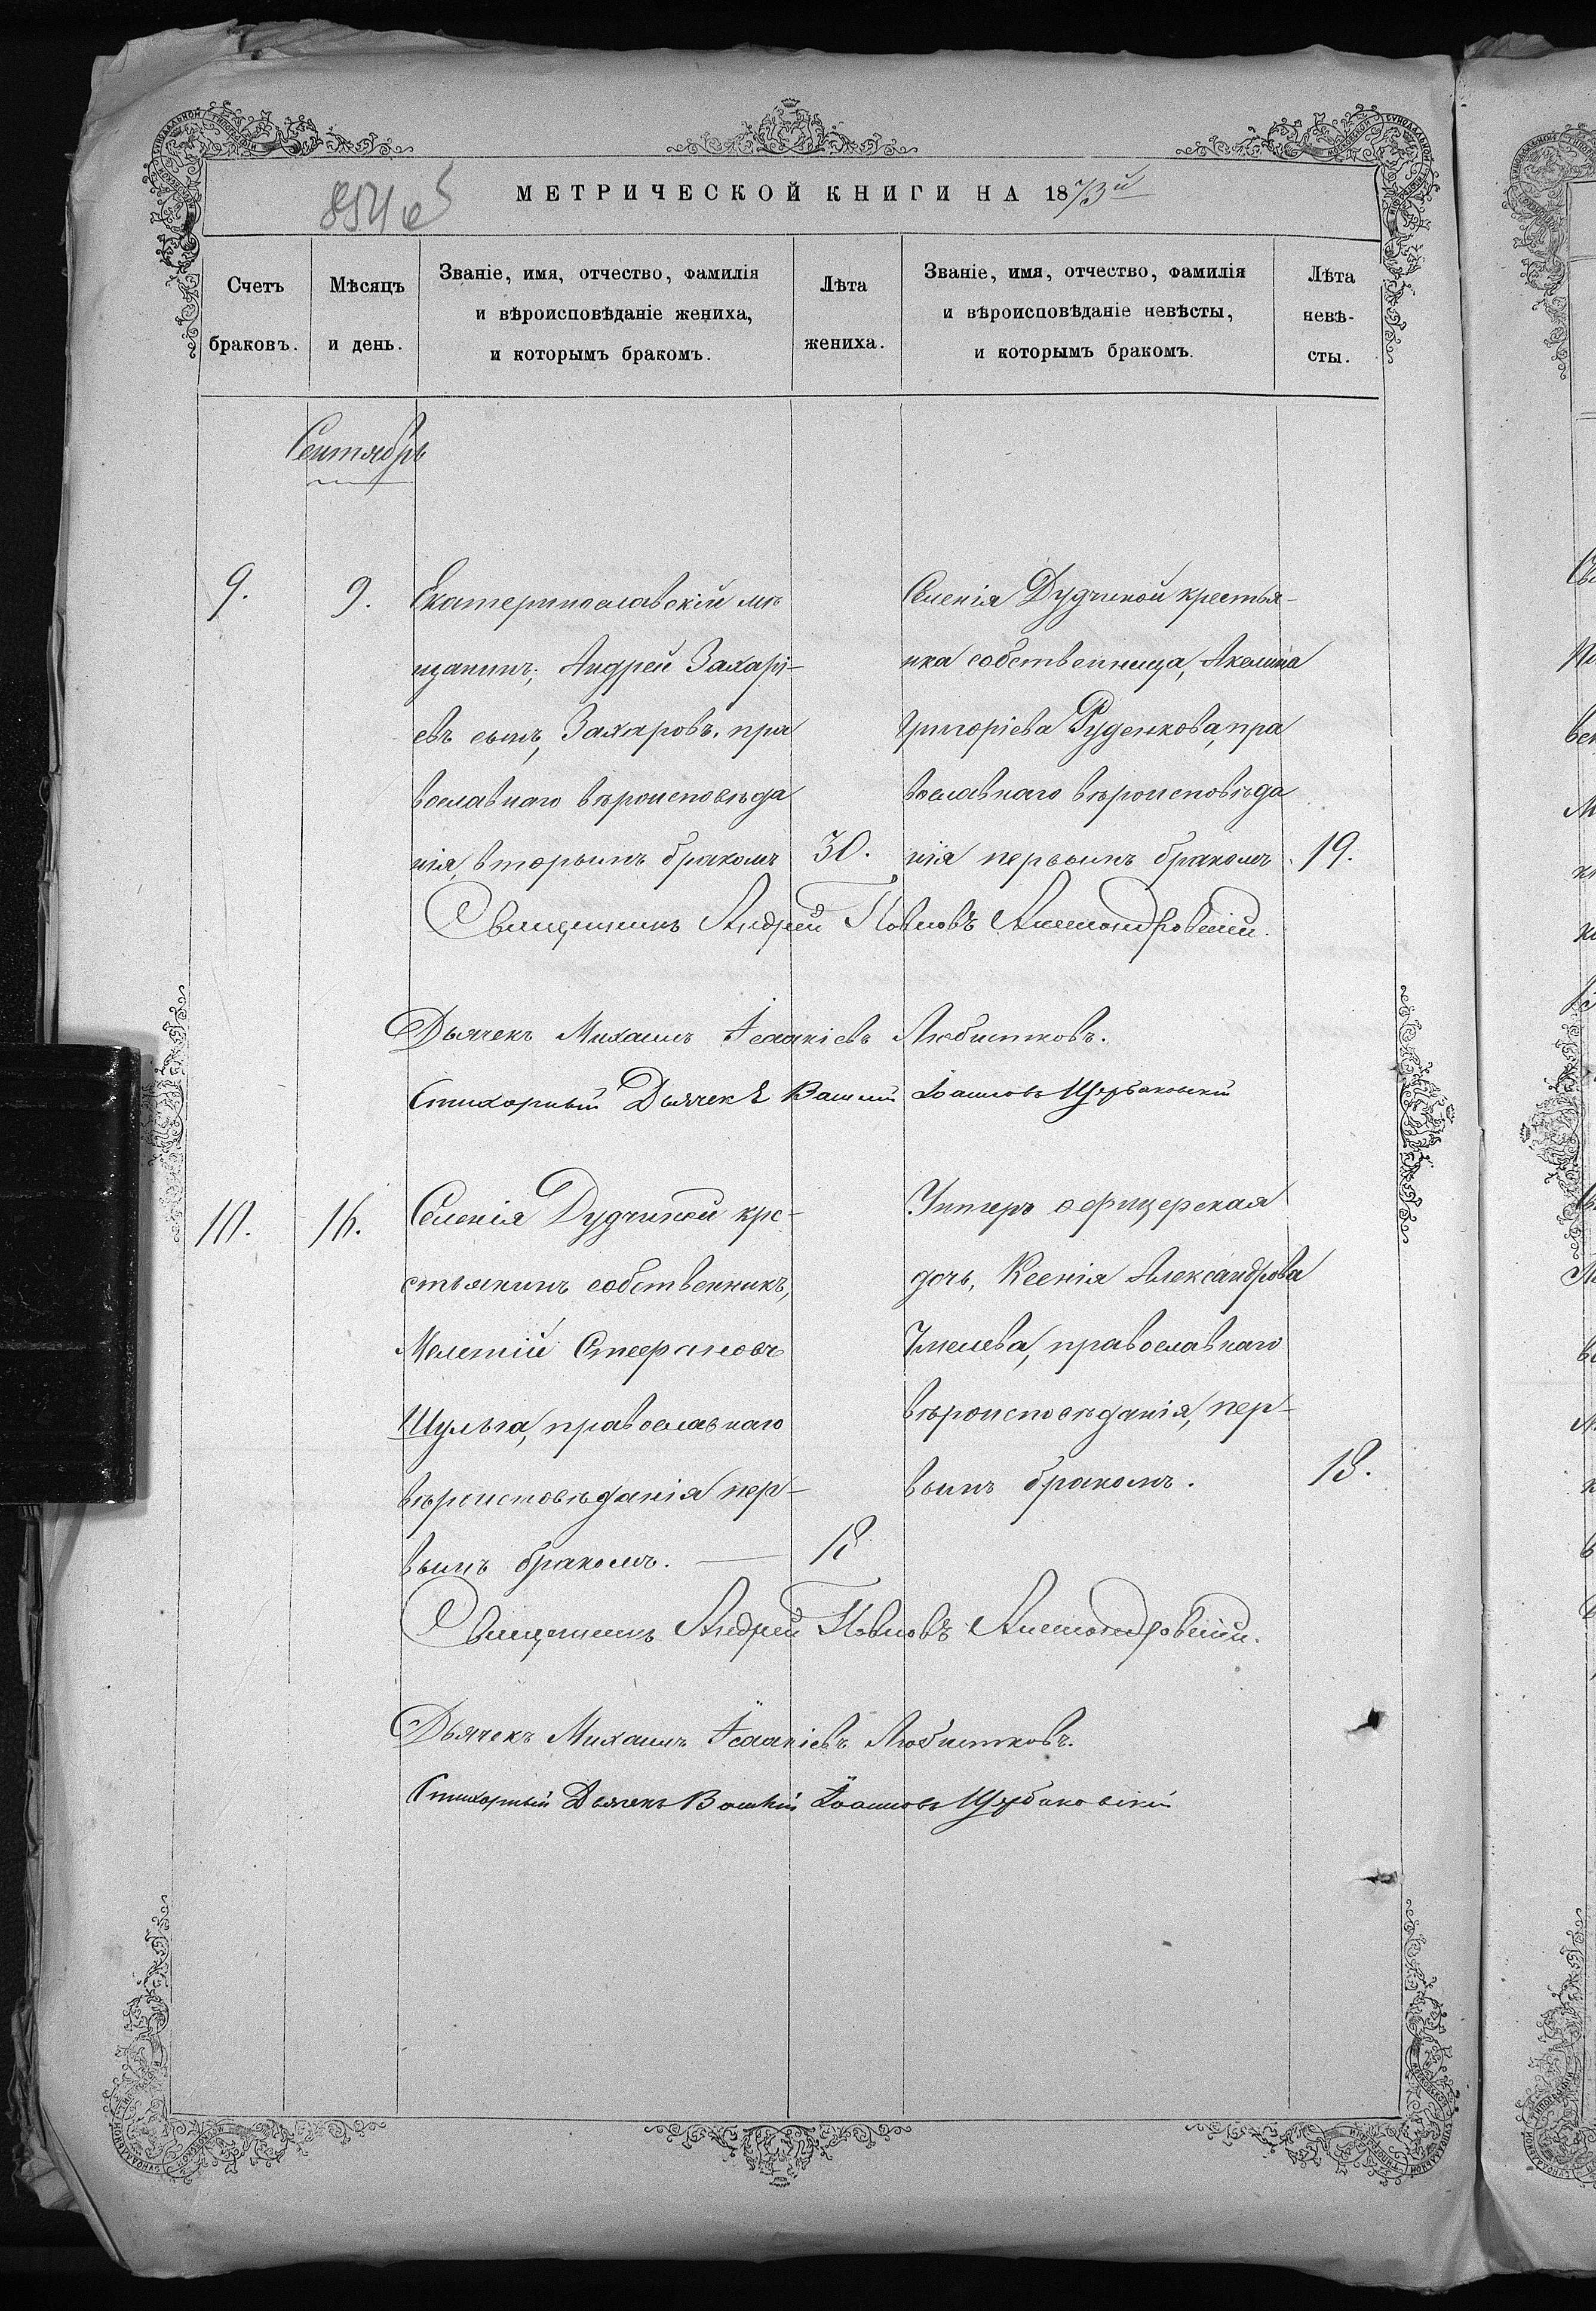 МЕТРИЧЕСКОЙ КНИГИ НА 1873й
Счетъ браковъ.
Мѣсяцъ и день.
Званіе, имя, отчество, фамилія
и вѣроисповѣданіе жениха,
и которымъ бракомъ.
Лѣта жениха.
Званіе, имя, отчество, фамилія
и вѣроисповѣданіе невѣсты,
и которымъ бракомъ.
Лѣта невѣ-
сты.
Сентябрь
9.
9.
Екатеринославскій мѣ
щанинъ, Андрей Захарі-
евъ сынъ, Захаровъ, пра
вославнаго вѣроисповѣда
нія, вторымъ бракомъ
30.
Селенія Дудчиной крестья-
нка собственница, Акелина
Григоріева Руденкова, пра
вославнаго вѣроисповѣда
нія первымъ бракомъ.
19.
Священникъ Андрей Павловъ Александровскій.
Дьячекъ Михаилъ Ісаакіевъ Любитковъ.
Стихарный Дьячекъ Іоанновъ Щербаковскій
10.
16.
Селенія Дудчиной кре-
стьянинъ собственникъ,
Мелетій Стефановъ
Шульга, православнаго
вѣроисповѣданія пер-
вымъ бракомъ.
18
Унтеръ офицерская
дочь, Ксенія Александрова
православнаго
вѣроисповѣданія, пер-
вымъ бракомъ.
18.
Священникъ Андрей Павловъ Александровскій.
Дьячекъ Михаилъ Ісаакіевъ Любитковъ.
Стихарный Дьячекъ Іоанновъ Щербаковскій